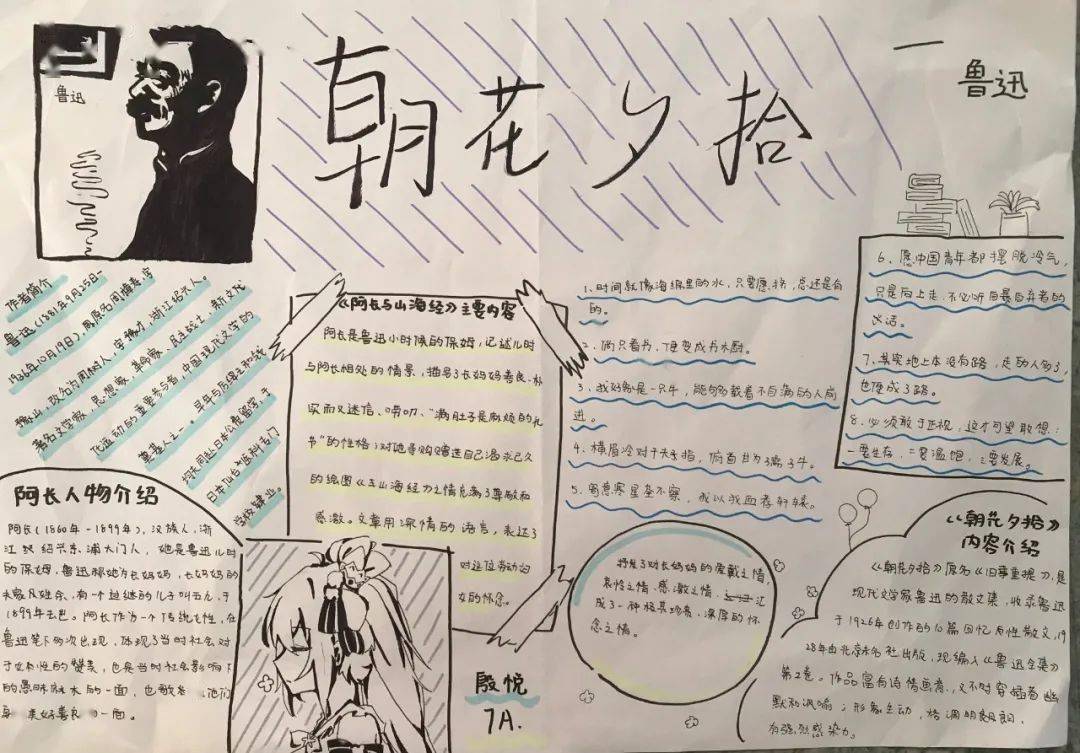 朝花夕拾
一 鲁迅
鲁迅
作者简介
鲁迅(1881年9月25日—
1936年10月19日),原名周樟寿,字
豫山,改名为周树人,字豫才,浙江绍兴人。
著名文学家,思想家,革命家,民主战士,新文化
化运动的重要参与者,中国现代文学的
奠基人之一。早年与厉绥之和钱
均夫同赴日本公费留学,于
日本仙台医科专门
学校肄业。
《阿长与山海经》主要内容
阿长是鲁迅小时候的保姆,记述儿时
与阿长相处的情景,描写了长妈妈善良、朴
实而又迷信、唠叨、“满肚子是麻烦的礼
节”的性格;对她寻购赠送自己渴求已久
的绘图《山海经》之情充满了尊敬和
感激。文章用深情的语言,表达了
对这位劳动妇
女的怀念。
1、时间就像海绵里的水,只要愿挤,总还是有
的。
2、倘只看书,便变成书橱。
3、我好象是一只牛,
4、横眉冷对千夫指,俯首甘为孺子牛。
5、寄意寒星荃不察,我以我血荐轩辕。
6、愿中国青年都摆脱冷气,
只是向上走,不必听自暴自弃者的
话。
7、其实地上本没有路,走的人多了,
也便成了路。
8、必须敢于正视,这才可望敢想:
一要生存,二要温饱,三要发展。
阿长人物介绍
阿长(1860年-1899年),汉族人,浙
江 绍兴东浦大门人,她是鲁迅儿时
的保姆,鲁迅称她为长妈妈,长妈妈的
夫家姓余,有一个过继的儿子叫五九,于
1899年去世。阿长作为一个传统女性,在
鲁迅笔下多次出现,体现了当时社会对
于女性的赞美,也是当时社会影响下
的愚昧麻木的一面,也歌 他们
美好善良 一面。
殷悦
7A.
抒发了对长妈妈的爱戴之情,
之情、感激之情, 汇
成了一种极其 、深厚的怀
念之情。
《朝花夕拾》
内容介绍
《朝花夕拾》原名《旧事重提》,是
现代文学家鲁迅的散文集,收录鲁迅
于1926年创作的10篇回忆性散文,19
28年由北京未名社出版,现编入《鲁迅全集》
第2卷。作品富有诗情画意,又不时穿插着幽
默和讽喻;形象生动,格调明朗,
有强烈感染力。